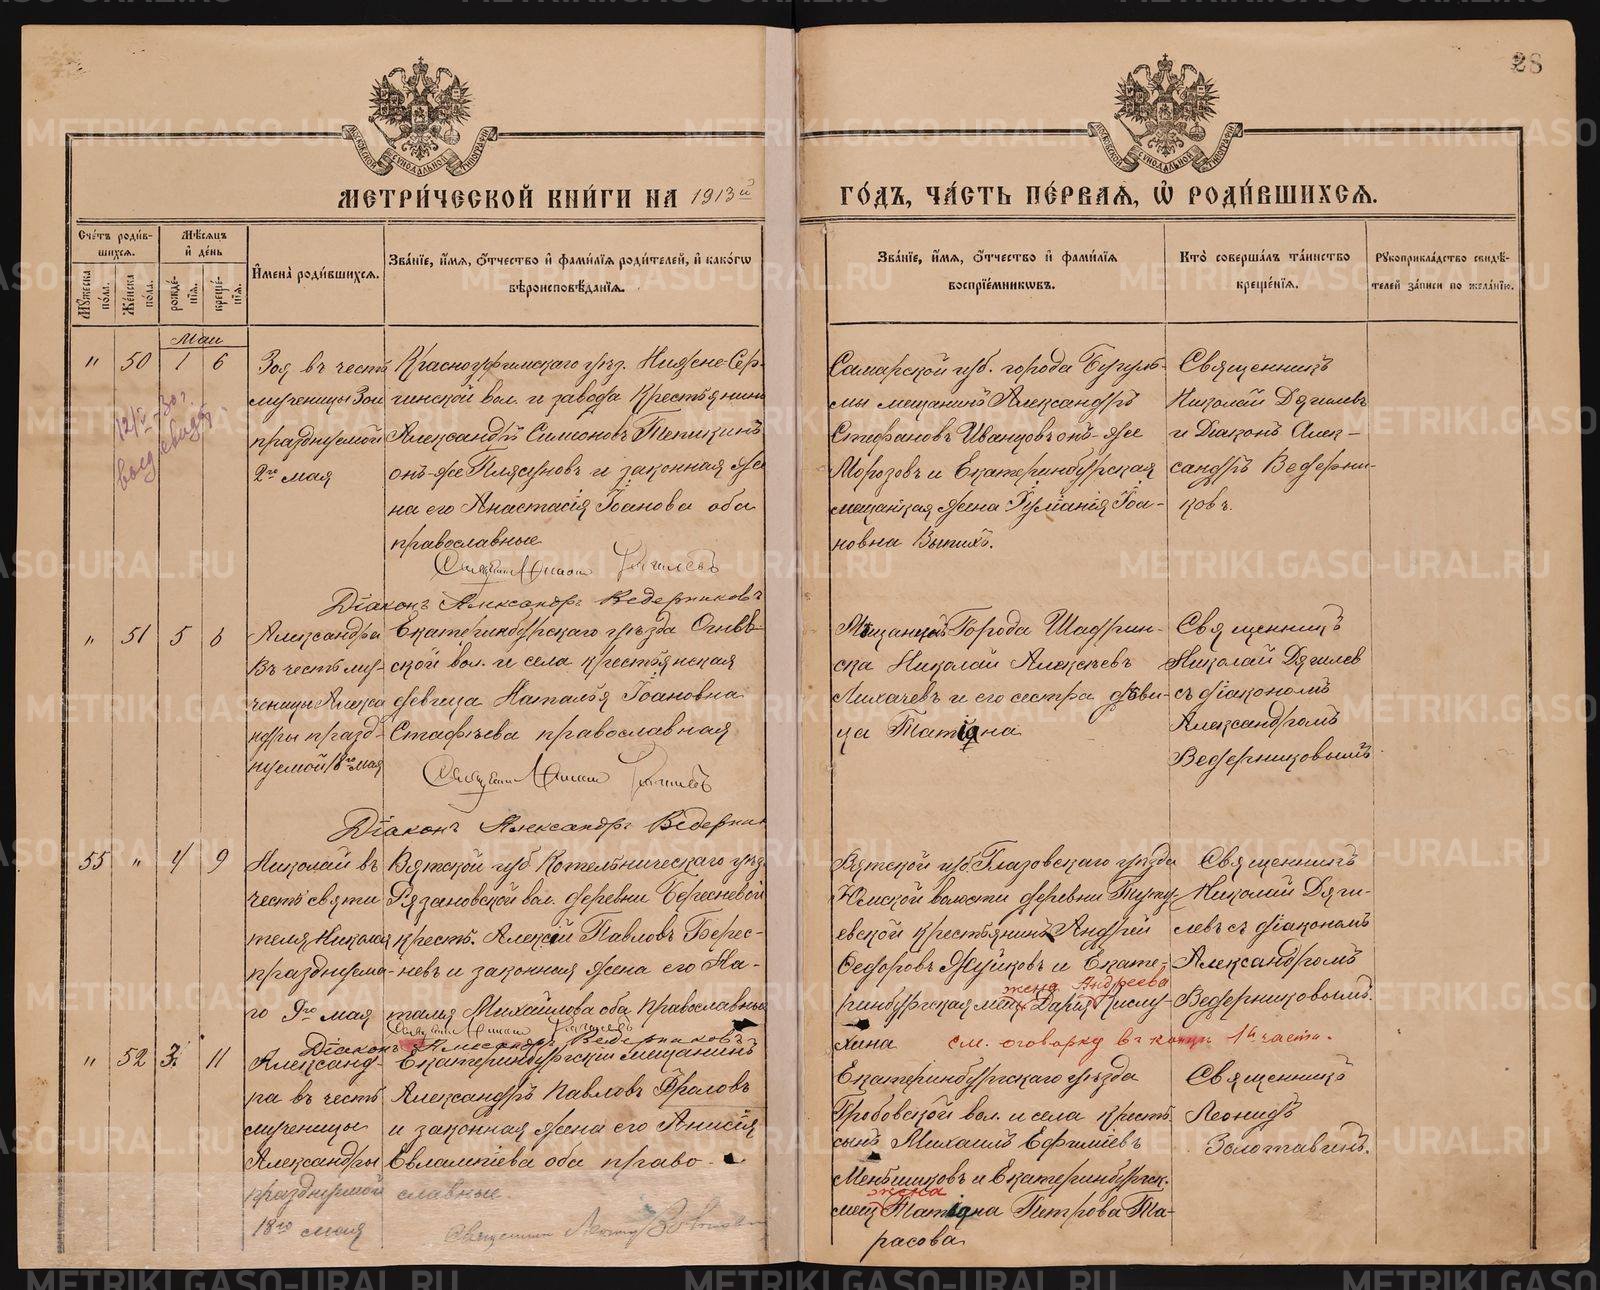 28
МЕТРИ́ЧЕСКОЙ КНИ́ГИ НА 1913й
ГО́ДЪ, ЧА́СТЬ ПЕ́РВАѦ, Ѽ РОДИ́ВШИХСѦ.
Сче́тъ роди́в-
шихсѧ.
Мѣ́сѧцъ
и҆ де́нь
Мꙋ́жеска по́ла.
Же́нска по́ла.
рожде́-нїѧ.
креще́-нїѧ.
И҆мена̀ роди́вшихсѧ.
Зва́нїе, и҆́мѧ, ѻ҆́тчество и҆ фами́лїѧ роди́телей, и҆ како́гѡ
вѣроисповѣ́данїѧ.
Зва́нїе, и҆́мѧ, ѻ҆́тчество и҆ фами́лїѧ
воспрїе́мникѡвъ.
Кто̀ соверша́лъ та́инство
креще́нїѧ.
Рꙋкоприкла́дство свидѣ́-
телей за́писи по жела́нїю.
Маи
" 50 1 6
Зоя въ честь
мученицы Зои
празднуемой
2го мая
Красноуфимскаго уѣз. Нижне-Сер-
гинской вол. и завода крестьянинъ
Александръ Симоновъ Тепикинъ
онъ-же Плясуновъ и законная же
на его Анастасія Іоанова оба
православные
Священникъ Николай Дягилевъ
Діаконъ Александръ Ведерниковъ
Самарской губ. города Бугуль-
мы мещанинъ Александръ
Стефановъ Иванцовъ онъ-же
Морозовъ и Екатеринбургская
мещанская жена Іуліанія Іоа-
новна Выпихъ.
Священникъ
Николай Дягилевъ
и Діаконъ Алек-
сандръ Ведерни-
ковъ.
" 51 5 6
Александра
въ честь му-
ченицы Алекса
ндры празд-
нуемой 18го мая
Екатеринбургскаго уѣзда Огнев-
ской вол. и села крестьянская
девица Наталья Іоановна
Стафѣева православная
Священникъ Николай Дягилевъ
Діаконъ Александръ Ведерник
Мѣщанинъ Города Шадрин-
ска Николай Алексѣевъ
Лихачевъ и его сестра дѣви-
ца Татіана
Священникъ
Николай Дягилев
съ діакономъ
Александромъ
Ведерниковымъ
55 " 4 9
Николай въ
честь святи
теля Николая
празднуема-
го 9го мая
Вятской губ Котельническаго уѣз
Рязановской вол. деревни Бересневой
крест. Алексѣй Павловъ Берес-
невъ и законная жена его На-
талия Михайлова оба православные
Священникъ Николай Дягилевъ
Діаконъ Александръ Ведерниковъ
Вятской губ. Глазовскаго уѣзда
Юмской волости деревни
евской крестьянинъ Андрей
Федоровъ Жуйковъ и Екате-
жена Андреева
ринбургская мещ Дарія Числу-
хина см. оговорку въ концѣ 1й части.
Священникъ
Николай Дяги-
левъ съ діакономъ
Александромъ
Ведерниковымъ.
" 52 3 11
Александ-
ра въ честь
мученицы
Александры
празднуемой
18го мая
Екатеринбургскій мещанинъ
Александръ Павловъ Фроловъ
и законная жена его Анисія
Евлампіева оба право-
славные.
Священникъ Леонидъ
Екатеринбургскаго уѣзда
Гробовской вол. и села крест.
сынъ Михаилъ Ефиміевъ
Меньшиковъ и Екатеринбургск.
жена
мещ Татіана Петрова Та-
расова
Священникъ
Леонидъ
Золотавинъ.
METRIKI.GASO-URAL.RU